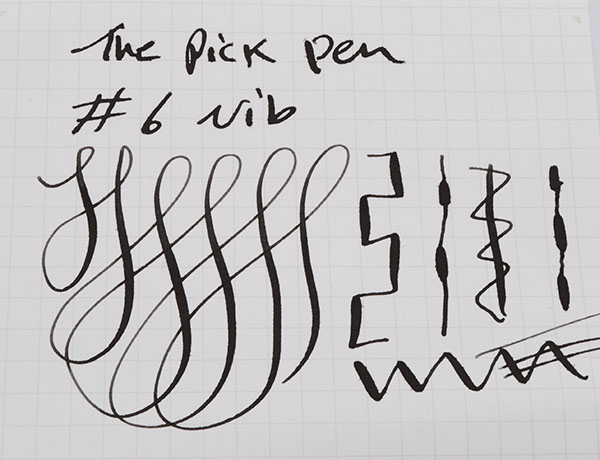 The Pick Pen
#6 Nib